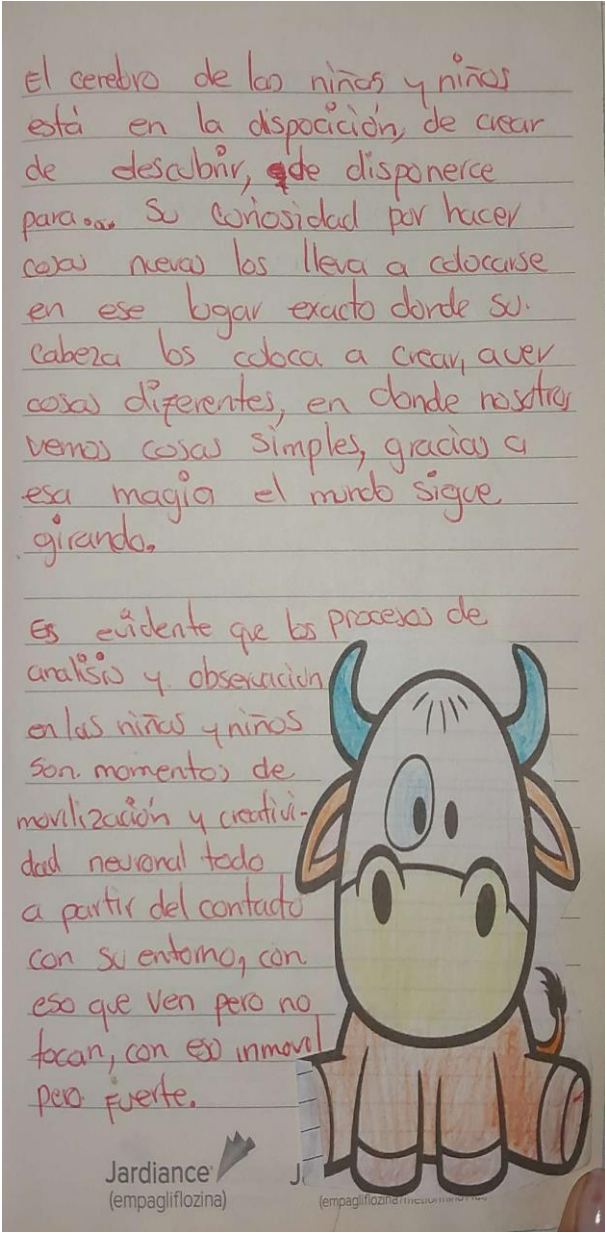 El cerebro de las niñas y niños
está en la disposición, de crear
de descubrir, de disponerce
para... Su curiosidad por hacer
cosas nuevas los lleva a colocarse
en ese lugar exacto donde su.
cabeza los coloca a crear, a ver
cosas diferentes, en donde nosotros
vemos cosas simples, gracias a
esa magia el mundo sigue
girando.
Es evidente que los procesos de
analisis y observación
en las niñas y niños
son momentos de
movilización y creativi-
dad neuronal todo
a partir del contacto
con su entorno, con
eso que ven pero no
tocan, con eso inmovil
pero fuerte.
Jardiance J
(empagliflozina) (empagliflozina